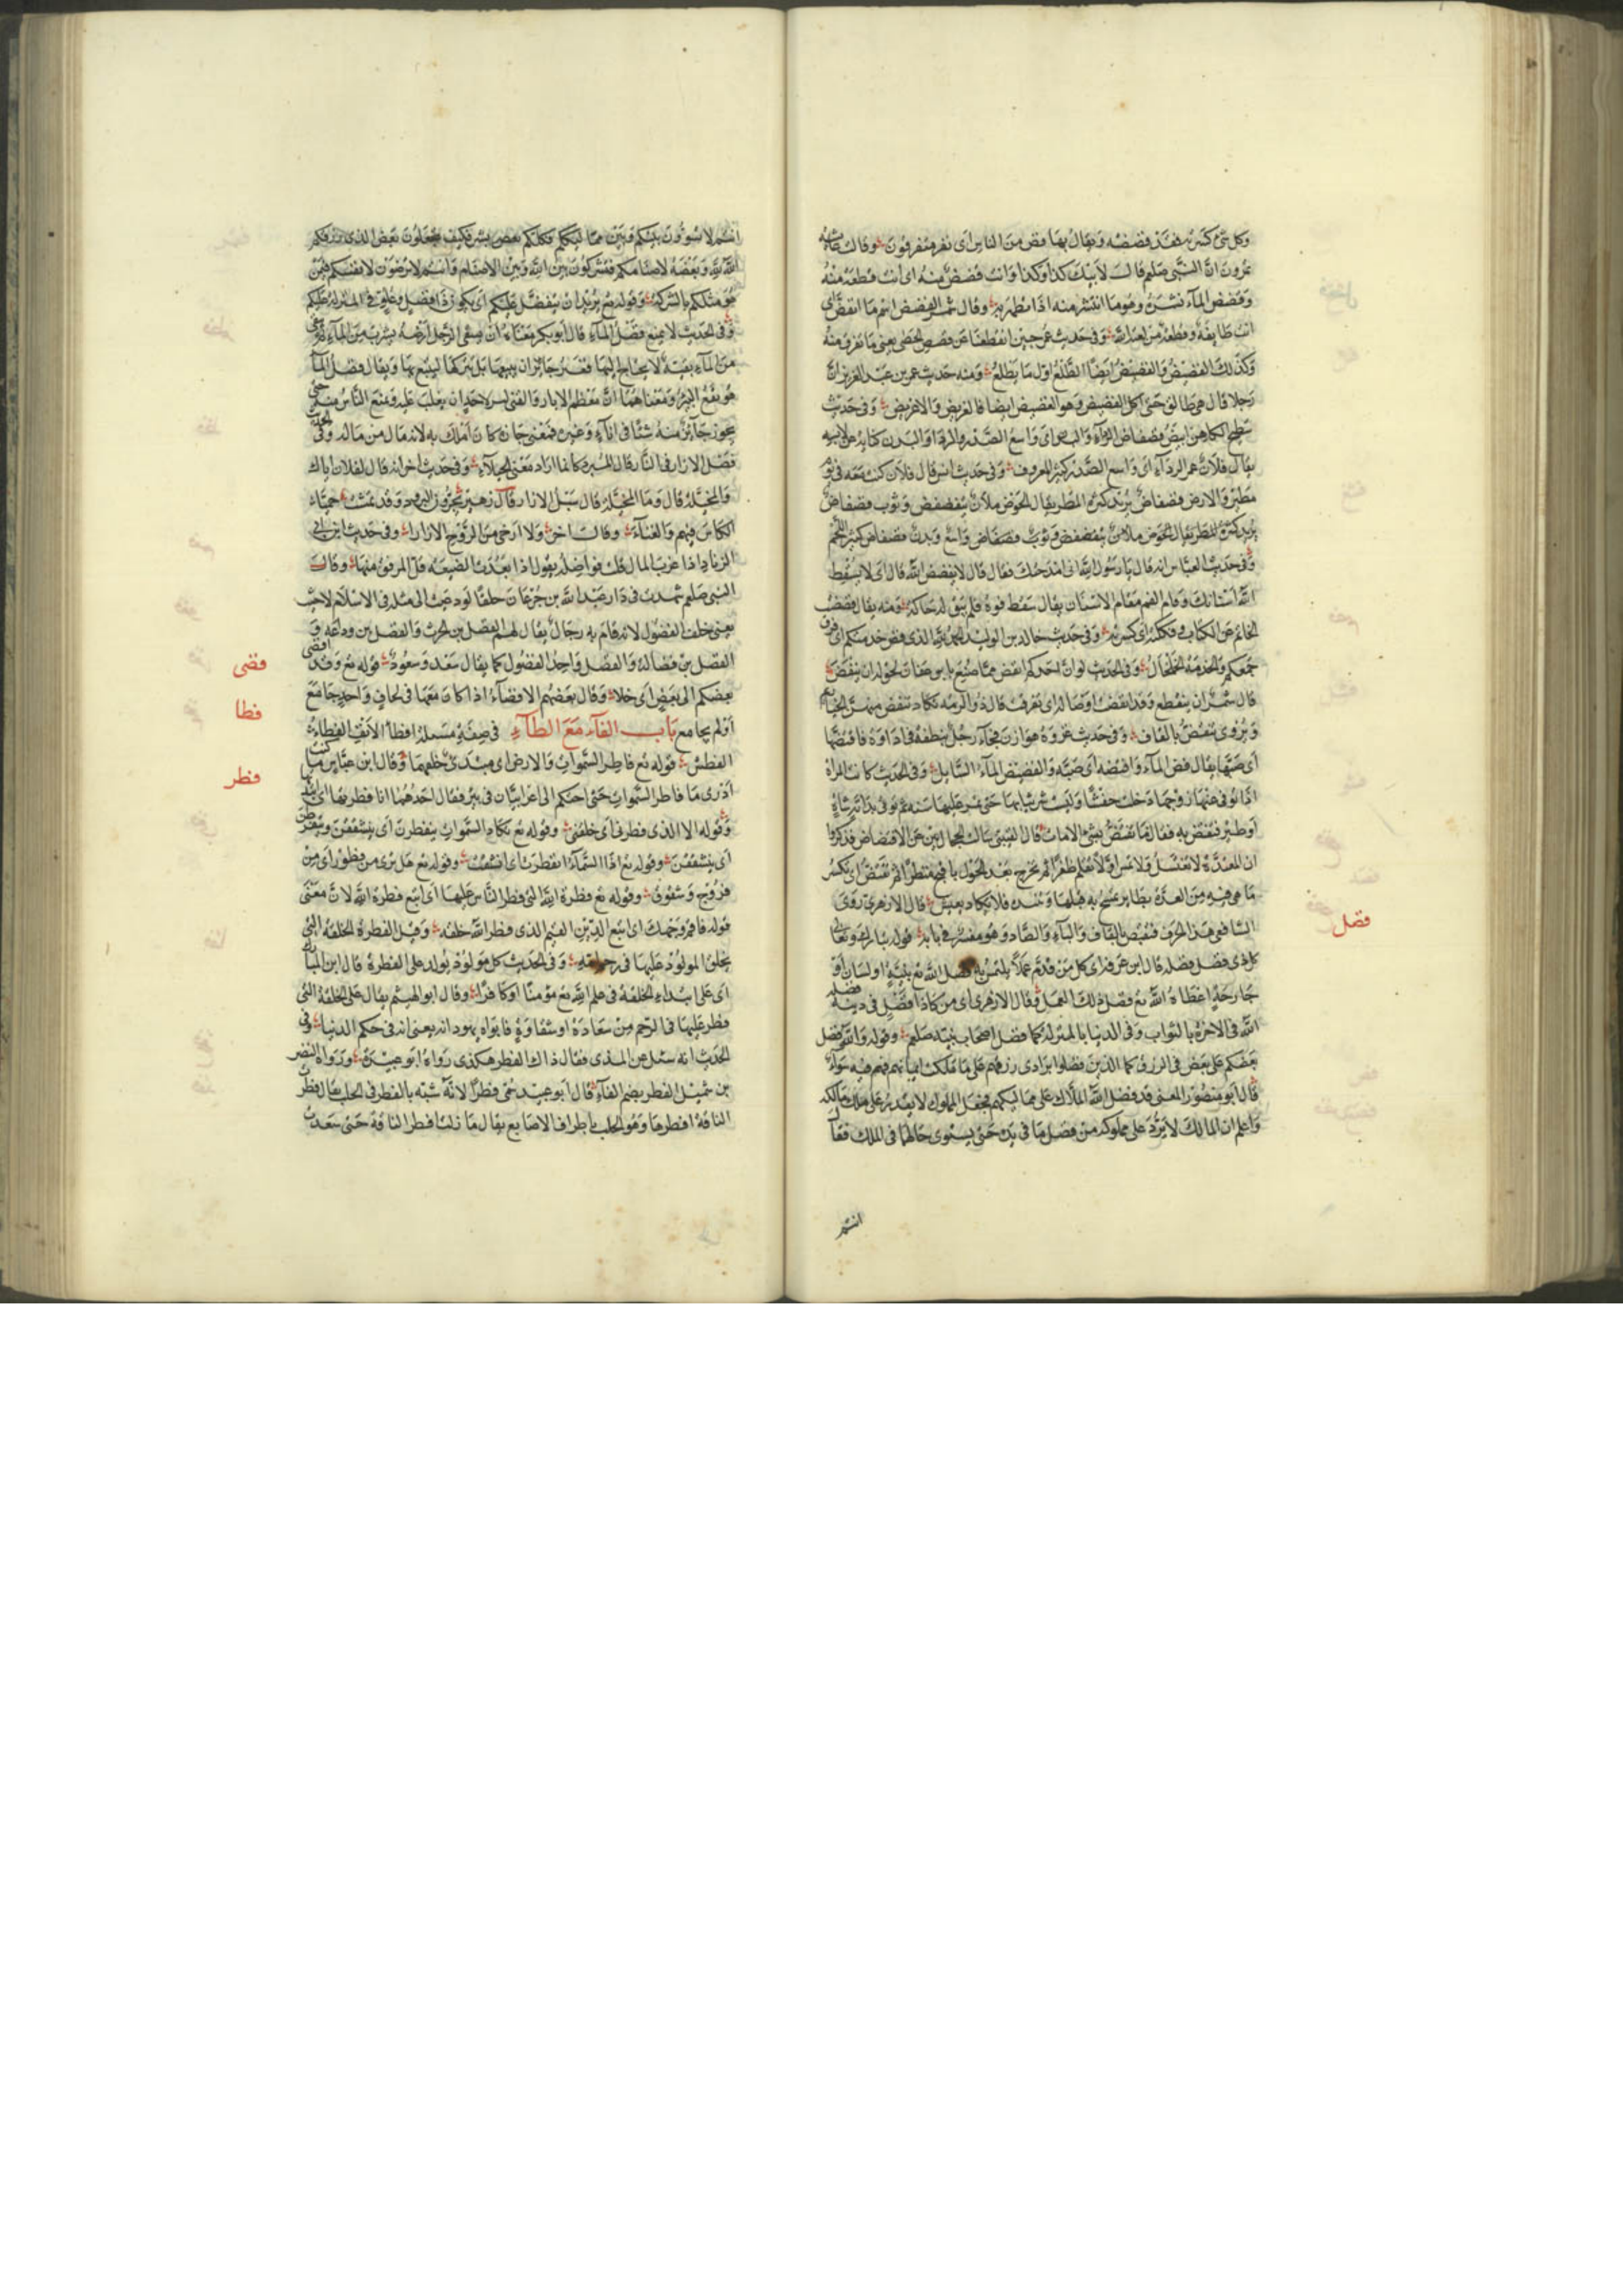 وكل شئ كسرته فقد فضضته ويقال بها فض من الناس اى نفر متفرقون وقالت عائشة
لمروان ان النبى صلعم قال لابيك كذا وكذا وانت فضض منه اى انت قطعة منه
وفضض المآء نشره وهو ما انتشر منه اذا تطهر به وقال شمر الفضض اسم ما انفض اى
انت طايفة وقطعة من لعنة الله وفى حديث عمر حين انقطعنا عن فضض الحصى يعنى ما تفرق منه
وكذلك الفضيض والفضيض ايضا الطلع اول ما يطلع ومنه حديث عمر بن عبد العزيز ان
رجلا قال هى طالق حتى اكل الفضيض وهو الغضيض ايضا قال الغريض والاغريض وفى حديث
سطيح الكاهن ابيض فضفاض الردآء والبدن اى واسع الصدر والردا والبدن كناية عن لابسه
يقال فلان غمر الردآء اى واسع الصدر كثير المعروف وفى حديث انس قال فلان كنت معه فى يوم
مطير والارض فضفاض يريد كثرة المطر يقال الحوض ملآن يتفضفض وثوب فضفاض
يريد كثرة المطر يقال الحوض ملان يتفضفض وثوب فضفاض واسع وبدن فضفاض كثير اللحم
وفى حديث العباس انه قال يا رسول الله انى امتدحتك فقال قال لا يفضض الله قال اى لا يسقط
الله اسنانك واقام الفم مقام الاسنان يقال سقط فوه فلم يبق له حاكة ومنه يقال فضضت
الخاتم عن الكتاب وفككته اى كسرته وفى حديث خالد بن الوليد الحمد لله الذى فض خدمتكم اى فرق
جمعكم والخدمة الخلخال وفى الحديث لو ان احدكم انفض مما صنع بابن عفان لحق له ان ينفض
قال شمر اى ينقطع وقد انفضت اوصاله اى تفرقت قال ذو الرمة تكاد تنفض منهن الحيازيم
ويروى تنقض بالقاف وفى حديث غزوة هوازن فجآء رجل بنطفة فى اداوة فافتضها
اى صبها يقال فض المآء وافتضه اى صبه والفضيض المآء السايل وفى الحديث كانت المراة
اذا توفى عنها زوجها دخلت حفشا ولبست شر ثيابها حتى تمر عليها سنة ثم توتى بدابة شاة
او طير فتفتض به فقلما تفتض بشئ الا مات قال القتيبى سالت الحجازيين عن الافتضاض فذكروا
ان المعتدة لا تغتسل ولا تمس ولا تقلم ظفرا ثم تخرج بعد الحول باقبح منظر ثم تفتض اى تكسر
ما هى فيه من العدة بطاير تمسح به قبلها وتنبذه فلا يكاد يعيش قال الازهرى روى
الشافعى هذا الحرف فتقبص بالقاف والبآء والصاد وهو مفسر فى بابه قوله تبارك وتعالى
كل ذى فضل فضله قال ابن عرفة اى كل من قدم عملا يلتمس به فضل الله تع بنية او لسان او
جارحة اعطاه الله تع فضل ذلك العمل وقال الازهرى اى من كان ذا فضل فى دينه فضله
الله فى الاخرة بالثواب وفى الدنيا بالمنزلة كما فضل اصحاب نبيه صلعم وقوله والله فضل
بعضكم على بعض فى الرزق كما الذين فضلوا برادى رزقهم على ما ملكت ايمانهم فهم فيه سوآء
قال ابو منصور المعنى قد فضل الله الملاك على مماليكهم فجعل المملوك لا يقدر على ملك مالكه
واعلم ان المالك لا يرد على مملوكه من فضل ما فى يده حتى يستوى حالهما فى الملك فقال
انتم
فضل
انتم لا تسوون بينكم وبين مماليككم وكلكم بعض بشر فكيف تجعلون بعض الذى رزقكم
الله لله وبعضه لاصنامكم فتشركون بين الله وبين الاصنام وانتم لا ترضون لانفسكم فيمن
هو مثلكم بالشركة وقوله تع يريد ان يتفضل عليكم اى يكون ذا فضل وعلو فى المنزلة عليكم
وفى الحديث لا يمنع فضل المآء قال ابو بكر معناه ان يسقى الرجل ارضه بشرب من المآء ثم يبقى
من المآء بقية لا يحتاج اليها فغير جائز ان يبيعها بل يتركها ليتبع بها ويقال فضل المآء
هو نقع البير ومعناهما ان معظم الابار والقنى ليس لاحد ان يغلب عليه ويمنع الناس منه حتى
يحوز جآئز منه شئا فى انآء وغيره فمعنى حازه كان املك به لانه مال من ماله وفى الحديث
فضل الازار فى النار قال المبرد كانما اراد معنى الخيلآء وفى حديث اخر انه قال لفلان اياك
والمخيلة قال وما المخيلة قال سبل الازار قال زهير يجرون البرود وقد تمشت حميا
الكاس فيهم والغنآء وقالت اخرى ولا ارخى من الزوج الازارا وفى حديث ابن ابى
الزناد اذا عزب المال قلت فواضله يقول اذا بعدت الضيعة قل المرفق منها وقال
النبى صلعم شهدت فى دار عبد الله بن جدعان حلفا لو دعيت الى مثله فى الاسلام لاجبت
يعنى حلف الفضول لانه قام به رجال يقال لهم الفضل بن الحرث والفضل بن وداعه و
الفضل بن فضالة والفضل واحد الفضول كما يقال سعد وسعود قوله تع وقد افضى
بعضكم الى بعض اى خلا وقال بعضهم الافضآء اذا كان معها فى لحاف واحد جامع
او لم يجامع باب الفآء مع الطآء فى صفة مسيلمة افطا الانف الفطاء
الفطس قوله تع فاطر السموات والارض اى مبتدئ خلقهما وقال ابن عباس ما كنت
ادرى ما فاطر السموات حتى احتكم الى اعرابيان فى بئر فقال احدهما انا فطرتها اى ابتداتها
وقوله الا الذى فطرنى اى خلقنى وقوله تع تكاد السموات ينفطرن اى ينشققن ويتفطرن
اى يتشققن وقوله تع اذا السمآء انفطرت اى انشقت وقوله تع هل ترى من فطور اى من
فروج وشقوق وقوله تع فطرة الله التى فطر الناس عليها اى اتبع فطرة الله لان معنى
قوله فاقم وجهك اى اتبع الدين القيم الذى فطر الله خلقه وقيل الفطرة الخلقة التى
يخلق المولود عليها فى رحم امه وفى الحديث كل مولود يولد على الفطرة قال ابن المبارك
اى على ابتداء الخلقة فى علم الله تع مؤمنا او كافرا وقال ابو الهيثم يقال على الخلقة التى
فطر عليها فى الرحم من سعادة او شقاوة فابواه يهودانه يعنى انه فى حكم الدنيا وفى
الحديث انه سئل عن المذى فقال ذاك الفطر هكذى رواه ابو عبيدة ورواه النضر
بن شميل الفطر بضم الفآء قال ابو عبيد سمى فطرا لانه شبه بالفطر فى الحلب يقال فطرت
الناقة افطرها وهو الحلب باطراف الاصابع يقال ما زلت افطر الناقة حتى سعدت
فضى
فطا
فطر